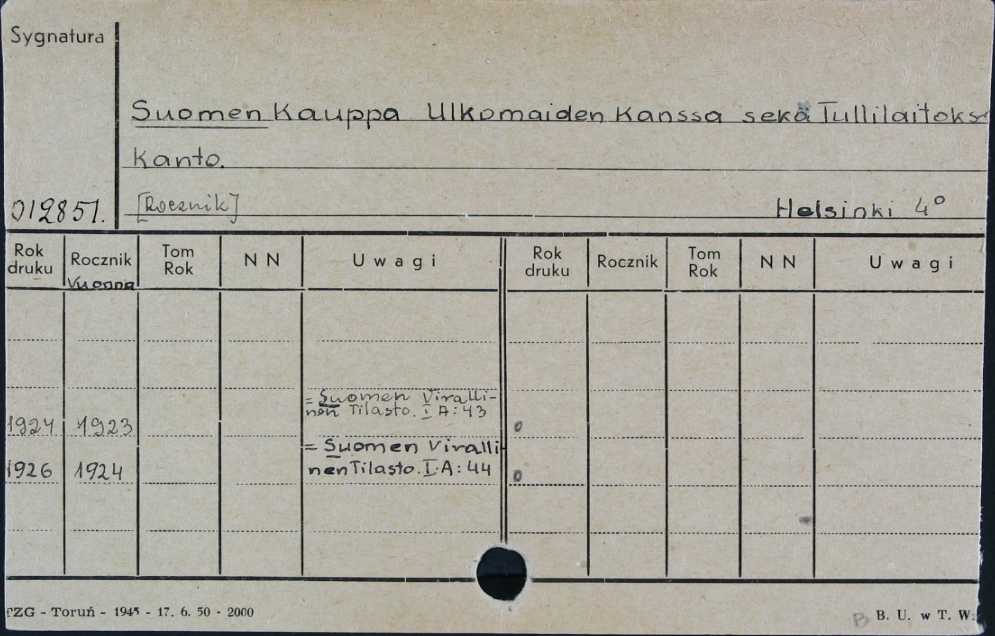 Sygnatura
Suomen Kauppa Ulkomaiden Kanssa sekä Tullilaitoks
kanto.
012851. [Rocznik] Helsinki 4°
Rok druku Rocznik Tom Rok N N U w a g i Rok druku Rocznik Tom Rok N N U w a g i
Vuonna
= Suomen Viralli-
1924 1923 nen Tilasto. I A: 43 0
= Suomen Viralli-
1926 1924 nen Tilasto. I. A: 44 0
TZG - Toruń - 1945 - 17. 6. 50 - 2000 B B. U. w T. W: